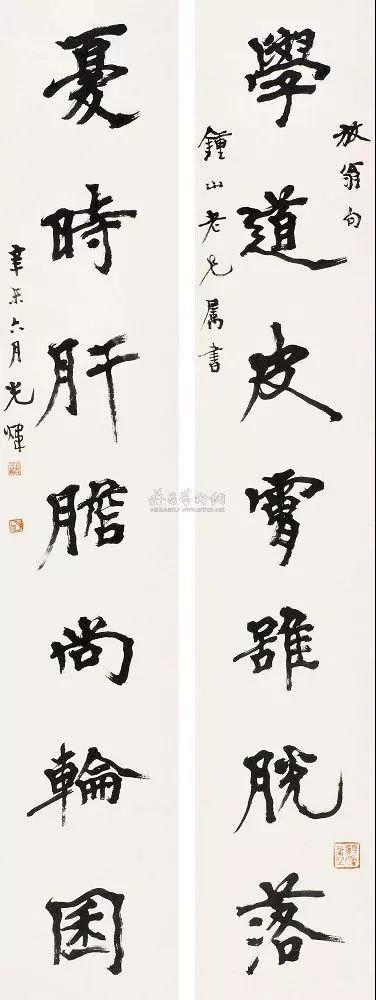 放翁句
學道皮膚雖脫落
鍾山老兄屬書
憂時肝膽尚輪囷
辛未六月光煒
雅昌藝術網